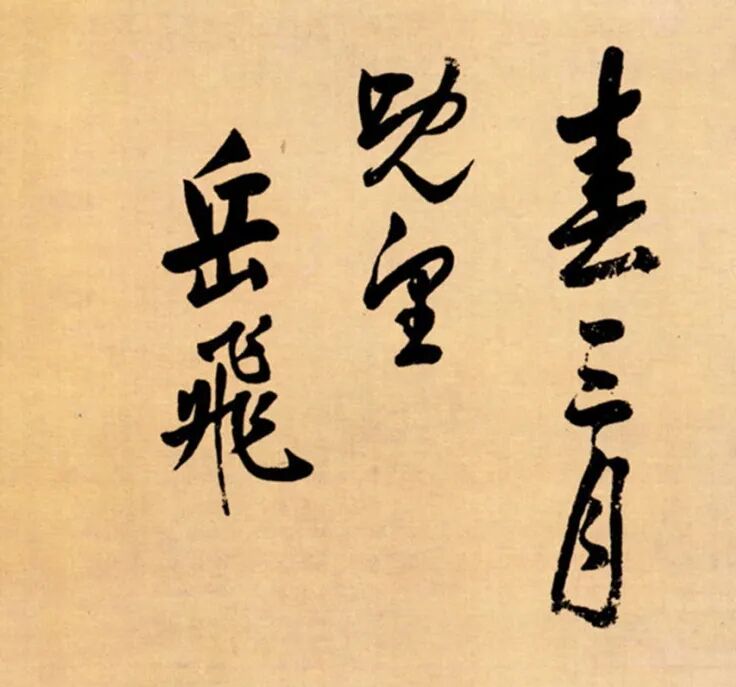 春三月
既望
岳飛